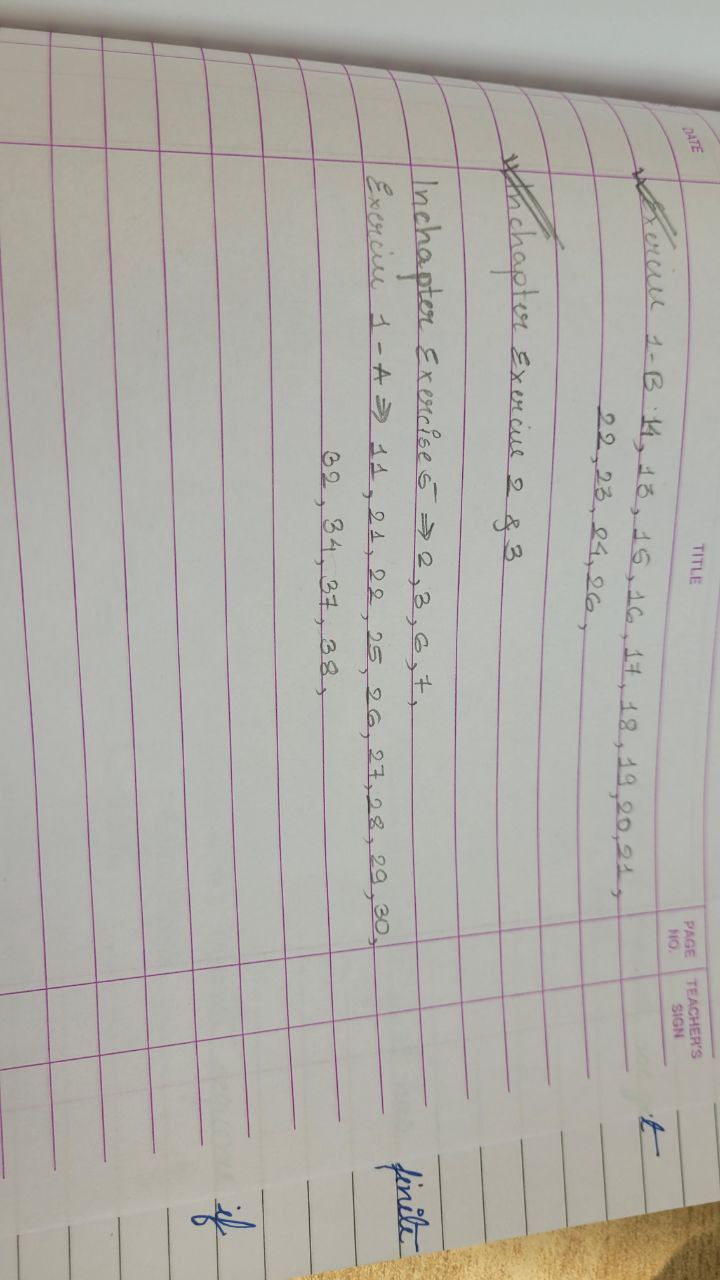 DATE TITLE PAGE NO. TEACHER'S SIGN
Exercise 1-B 14, 13, 15, 16, 17, 18, 19, 20, 21,
22, 23, 24, 26,
Inchapter Exercise 2 & 3
Inchapter Exercise 5 ⇒ 2, 3, 6, 7,
Exercise 1-A ⇒ 11, 21, 22, 25, 26, 27, 28, 29, 30,
32, 34, 37, 38,
finite
if